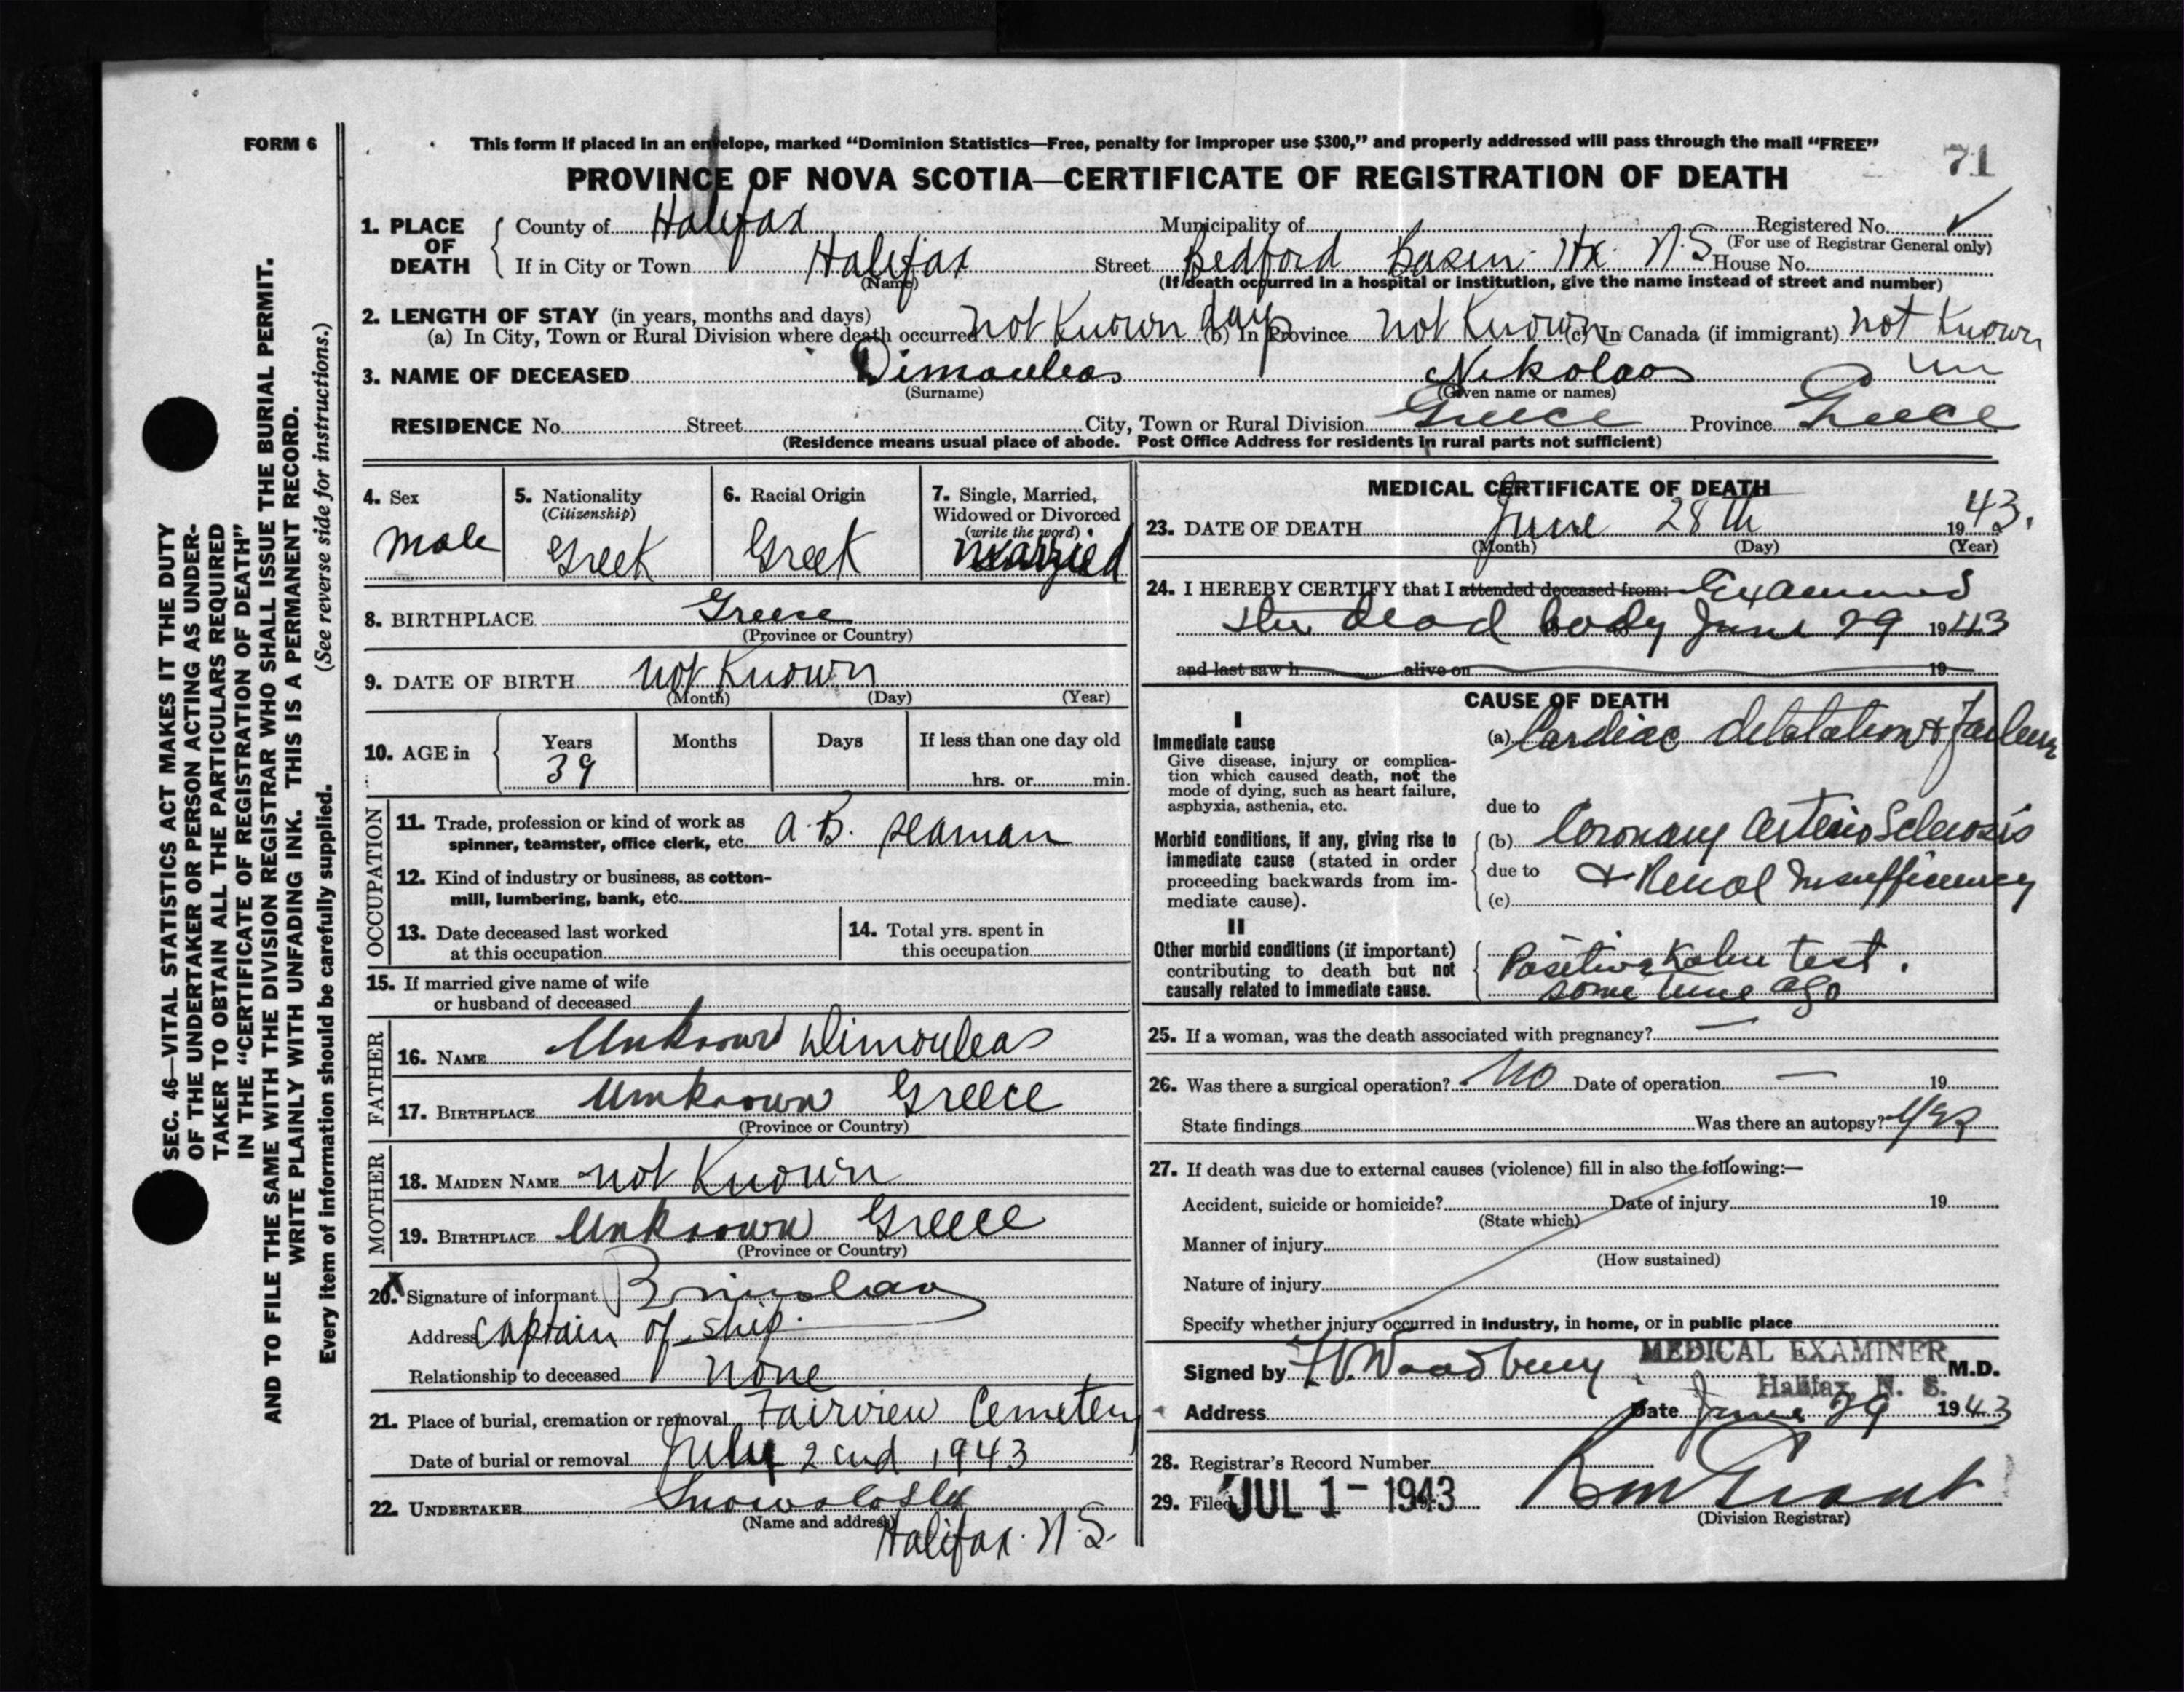 FORM 6
This form if placed in an envelope, marked “Dominion Statistics—Free, penalty for improper use $300,” and properly addressed will pass through the mail “FREE”
71
PROVINCE OF NOVA SCOTIA—CERTIFICATE OF REGISTRATION OF DEATH
1. PLACE OF DEATH
County of Halifax Municipality of Registered No. ✓
(For use of Registrar General only)
If in City or Town Halifax Street Bedford Basin Hx. N.S House No.
(Name) (If death occurred in a hospital or institution, give the name instead of street and number)
2. LENGTH OF STAY (in years, months and days)
(a) In City, Town or Rural Division where death occurred not Known days (b) In Province not Known (c) In Canada (if immigrant) not Known
3. NAME OF DECEASED Dimouleas Nikolaos
(Surname) (Given name or names)
RESIDENCE No. Street City, Town or Rural Division Greece Province Greece
(Residence means usual place of abode. Post Office Address for residents in rural parts not sufficient)
4. Sex
male
5. Nationality
(Citizenship)
Greek
6. Racial Origin
Greek
7. Single, Married, Widowed or Divorced
(write the word)
Married
8. BIRTHPLACE Greece
(Province or Country)
9. DATE OF BIRTH not Known
(Month) (Day) (Year)
10. AGE in
Years Months Days If less than one day old
39 hrs. or min.
OCCUPATION
11. Trade, profession or kind of work as
spinner, teamster, office clerk, etc. A.B. seaman
12. Kind of industry or business, as cotton-
mill, lumbering, bank, etc.
13. Date deceased last worked
at this occupation
14. Total yrs. spent in
this occupation
15. If married give name of wife
or husband of deceased
FATHER
16. NAME Unknown Dimouleas
17. BIRTHPLACE Unknown Greece
(Province or Country)
MOTHER
18. MAIDEN NAME not Known
19. BIRTHPLACE Unknown Greece
(Province or Country)
20. X Signature of informant
Address Captain of ship.
Relationship to deceased none
21. Place of burial, cremation or removal Fairview Cemetery
Date of burial or removal July 2nd 1943
22. UNDERTAKER
(Name and address)
Halifax. N.S.
MEDICAL CERTIFICATE OF DEATH
23. DATE OF DEATH June 28th 1943.
(Month) (Day) (Year)
24. I HEREBY CERTIFY that I attended deceased from: Examined
the dead body June 29 1943
and last saw h alive on 19
CAUSE OF DEATH
I
Immediate cause
Give disease, injury or complica-
tion which caused death, not the
mode of dying, such as heart failure,
asphyxia, asthenia, etc.
(a) Cardiac dilatation & Failure
due to
Morbid conditions, if any, giving rise to
immediate cause (stated in order
proceeding backwards from im-
mediate cause).
(b) Coronary arterio Sclerosis
due to & Renal Insufficiency
(c)
II
Other morbid conditions (if important)
contributing to death but not
causally related to immediate cause.
Positive Kahn test.
some time ago
25. If a woman, was the death associated with pregnancy? —
26. Was there a surgical operation? No Date of operation — 19
State findings Was there an autopsy? yes
27. If death was due to external causes (violence) fill in also the following:—
Accident, suicide or homicide? Date of injury 19
(State which)
Manner of injury
(How sustained)
Nature of injury
Specify whether injury occurred in industry, in home, or in public place
Signed by Woodbury MEDICAL EXAMINER M.D.
Halifax, N. S.
Address Date June 29 1943
28. Registrar's Record Number
29. Filed JUL 1 - 1943
(Division Registrar)
SEC. 46—VITAL STATISTICS ACT MAKES IT THE DUTY
OF THE UNDERTAKER OR PERSON ACTING AS UNDER-
TAKER TO OBTAIN ALL THE PARTICULARS REQUIRED
IN THE “CERTIFICATE OF REGISTRATION OF DEATH”
AND TO FILE THE SAME WITH THE DIVISION REGISTRAR WHO SHALL ISSUE THE BURIAL PERMIT.
WRITE PLAINLY WITH UNFADING INK. THIS IS A PERMANENT RECORD.
Every item of information should be carefully supplied. (See reverse side for instructions.)